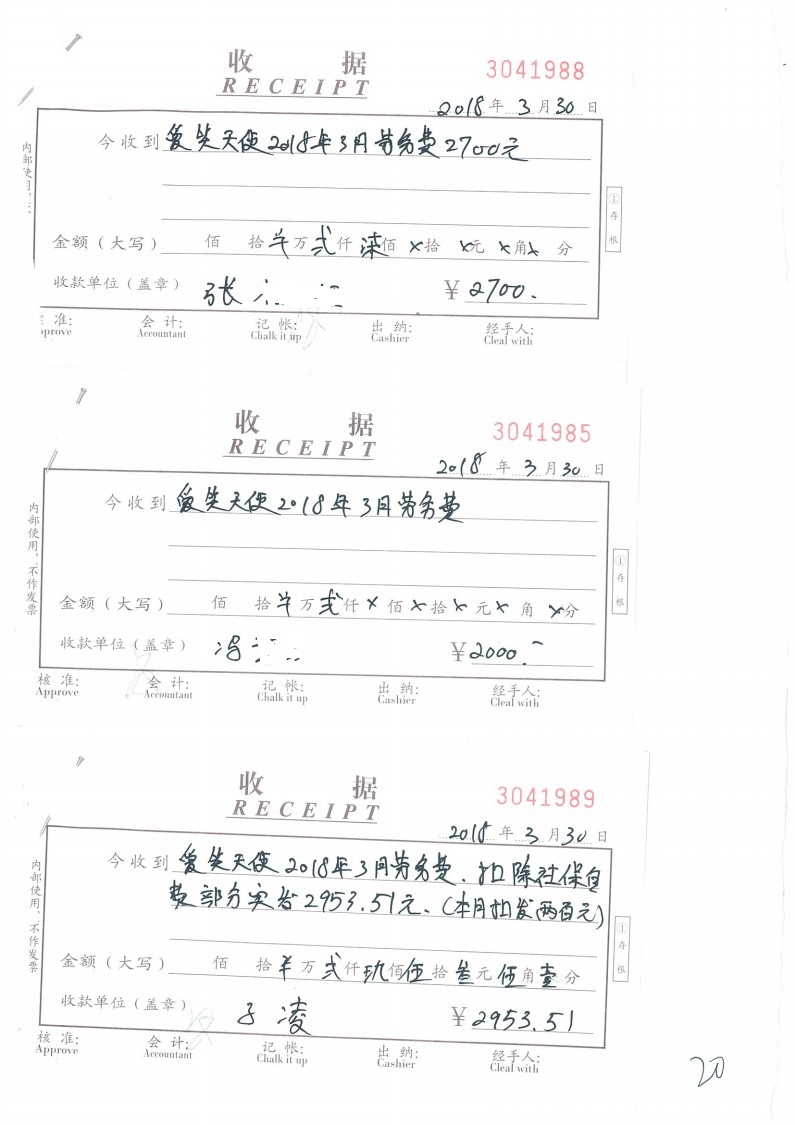 收 据
RECEIPT
3041988
2018年3月30日
今收到 爱笑天使2018年3月劳务费2700元
内部使用,
①存根
金额(大写) 佰 拾 万贰仟柒佰×拾×元×角× 分
收款单位(盖章) 张 ¥2700.
准: 会 计: 记 帐: 出 纳: 经手人:
prove Accountant Chalk it up Cashier Cleal with
收 据
RECEIPT
3041985
2018年3月30日
今收到 爱笑天使2018年3月劳务费
内部使用,不作发票
①存根
金额(大写) 佰 拾 万贰仟×佰×拾×元×角×分
收款单位(盖章) 冯 ¥2000.-
核 准: 会 计: 记 帐: 出 纳: 经手人:
Approve Accountant Chalk it up Cashier Cleal with
收 据
RECEIPT
3041989
2018年3月30日
今收到 爱笑天使2018年3月劳务费、扣除社保自
费部分实发2953.51元、(本月扣发两百元)
内部使用,不作发票
①存根
金额(大写) 佰 拾 万贰仟玖佰伍拾叁元伍角壹分
收款单位(盖章) 子凌 ¥2953.51
核 准: 会 计: 记 帐: 出 纳: 经手人:
Approve Accountant Chalk it up Cashier Cleal with
20